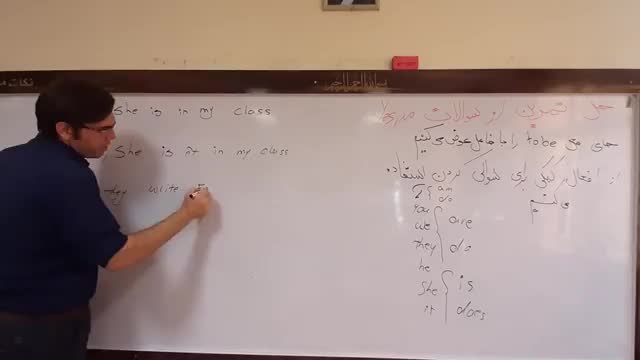 She is in my class
She is it in my class
they write
حل تمرین از سوالات مدرسه
جای می tobe را با فاعل عوض می‌کنیم
از افعال کمکی برای سوالی کردن استفاده
می کنیم
I { am
do
You
we { are
they { do
he
she { is
it { does
بسم الله الرحمن الرحیم
نکات